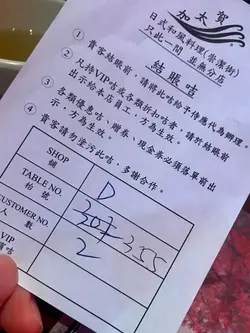 加太賀
日式和風料理(崇潔街)
只此一間 並無分店
結賬咭
① 貴客結賬前,請將此咭給予侍應代為辦理。
② 凡持VIP咭或各類折扣咭者,請於結賬前
出示給本店員工,方為生效。
③ 各類優惠咭、贈券、現金券必須落單前出
示,方為生效。
④ 貴客請勿塗污此咭,多謝合作。
SHOP
舖
D
TABLE NO.
枱號
CUSTOMER NO.
人數
2
VIP
貴咭